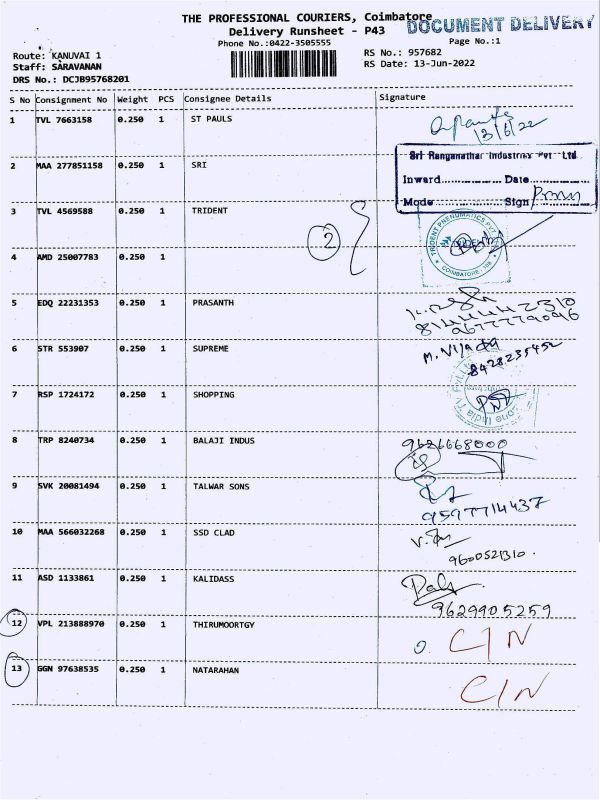 THE PROFESSIONAL COURIERS, Coimbatore
DOCUMENT DELIVERY
Delivery Runsheet - P43
Phone No.:0422-3505555
Page No.:1
Route: KANUVAI 1
RS No.: 957682
Staff: SARAVANAN
RS Date: 13-Jun-2022
DRS No.: DCJB95768201
S No Consignment No Weight PCS Consignee Details Signature
1 TVL 7663158 0.250 1 ST PAULS
13/6/22
Sri Ranganathar Industries Pvt Ltd
Inward Date
Mode Sign
2 MAA 277851158 0.250 1 SRI
3 TVL 4569588 0.250 1 TRIDENT
2
TRIDENT PNEUMATICS PVT
COIMBATORE
4 AMD 25007783 0.250 1
5 EDQ 22231353 0.250 1 PRASANTH
9677779096
6 STR 553907 0.250 1 SUPREME
M. Vijaya
8428235452
7 RSP 1724172 0.250 1 SHOPPING
8 TRP 8240734 0.250 1 BALAJI INDUS
9626668000
9 SVK 20081494 0.250 1 TALWAR SONS
9597714437
10 MAA 566032268 0.250 1 SSD CLAD
9600521310.
11 ASD 1133861 0.250 1 KALIDASS
9629905259
12 VPL 213888970 0.250 1 THIRUMOORTGY
C/N
13 GGN 97638535 0.250 1 NATARAHAN
C/N